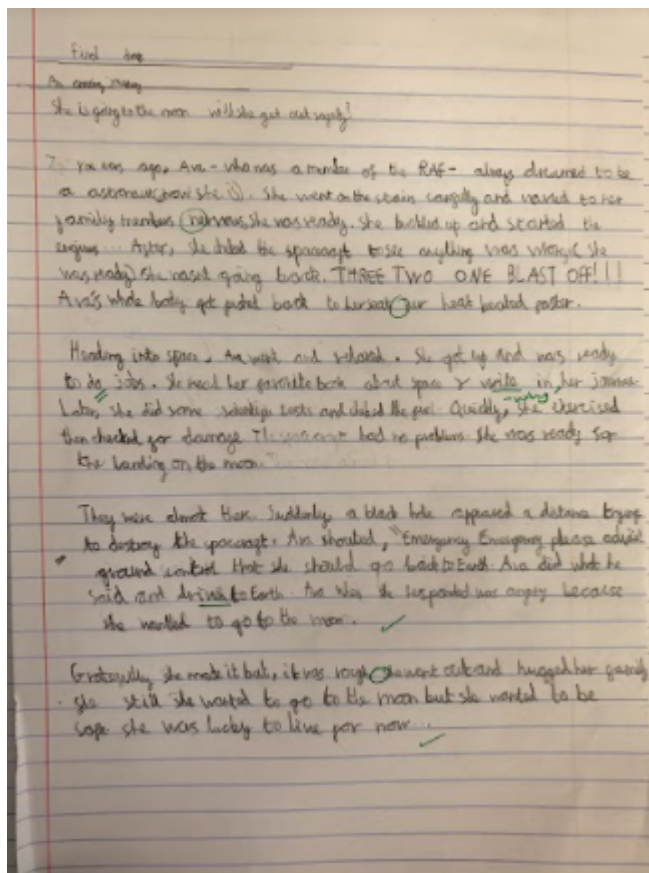 Final
An amazing
She is going to the moon will she get out safely?
years ago, Ava - who was a member of the RAF - always dreamed to be
a astronaut (now she is). She went on the stairs carefully and waved to her
family members nervous, she was ready. She buckled up and started the
engines... After, she cheked the spacecraft to see anything was wrong (she
was ready) She wasnt going back. THREE TWO ONE BLAST OFF!!!
Ava's whole body got pushed back to her seat her heat beated faster.
Heading into space, Ava went and relaxed. She got up and was ready
to do jobs. She read her favorite book about space & write in her journal.
Later, she did some tests and cheked the fuel. Quickly, she exercised
then checked for damage had no problem. She was ready for
the landing on the moon.
They were almost there. Suddenly, a black hole appeared a distance trying
to destroy the spacecraft. Ava shouted, "Emergency Emergency please advise
ground control that she should go back to Earth. Ava did what he
said and drive to Earth. Ava when she responded was angry because
she wanted to go to the moon.
Gratefully she made it but, it was rough she went out and hugged her family
she still she wanted to go to the moon but she wanted to be
safe she was lucky to live for now...